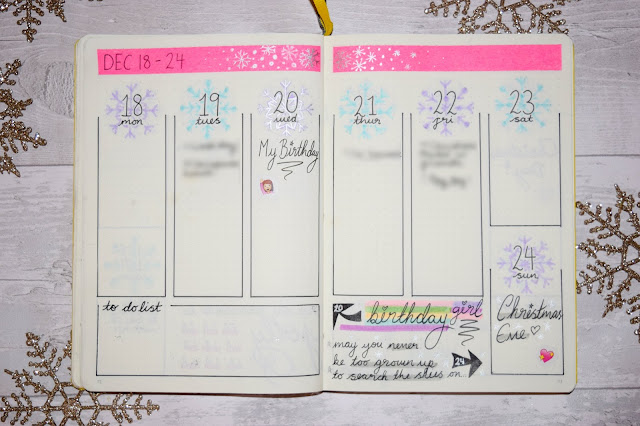 DEC 18-24
18
mon
19
tues
20
wed
My Birthday
21
thur
22
fri
23
sat
24
sun
Christmas
Eve
to do list
20
birthday girl
may you never
be too grown up
to search the skies on
24